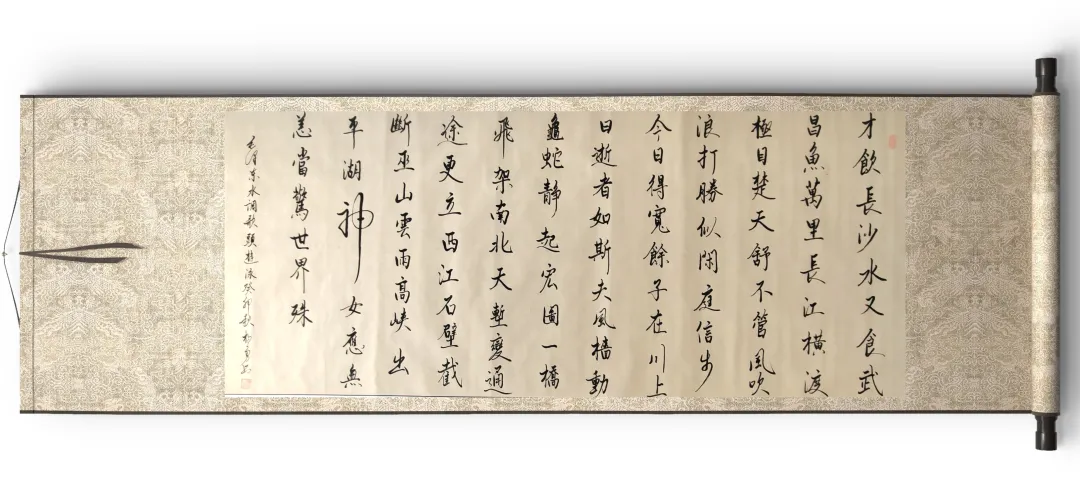 才飲長沙水又食武
昌魚萬里長江橫渡
極目楚天舒不管風吹
浪打勝似閑庭信步
今日得寬餘子在川上
曰逝者如斯夫風檣動
龜蛇靜起宏圖一橋
飛架南北天塹變通
途更立西江石壁截
斷巫山雲雨高峽出
平湖神女應無
恙當驚世界殊
水調歌頭游泳癸卯秋